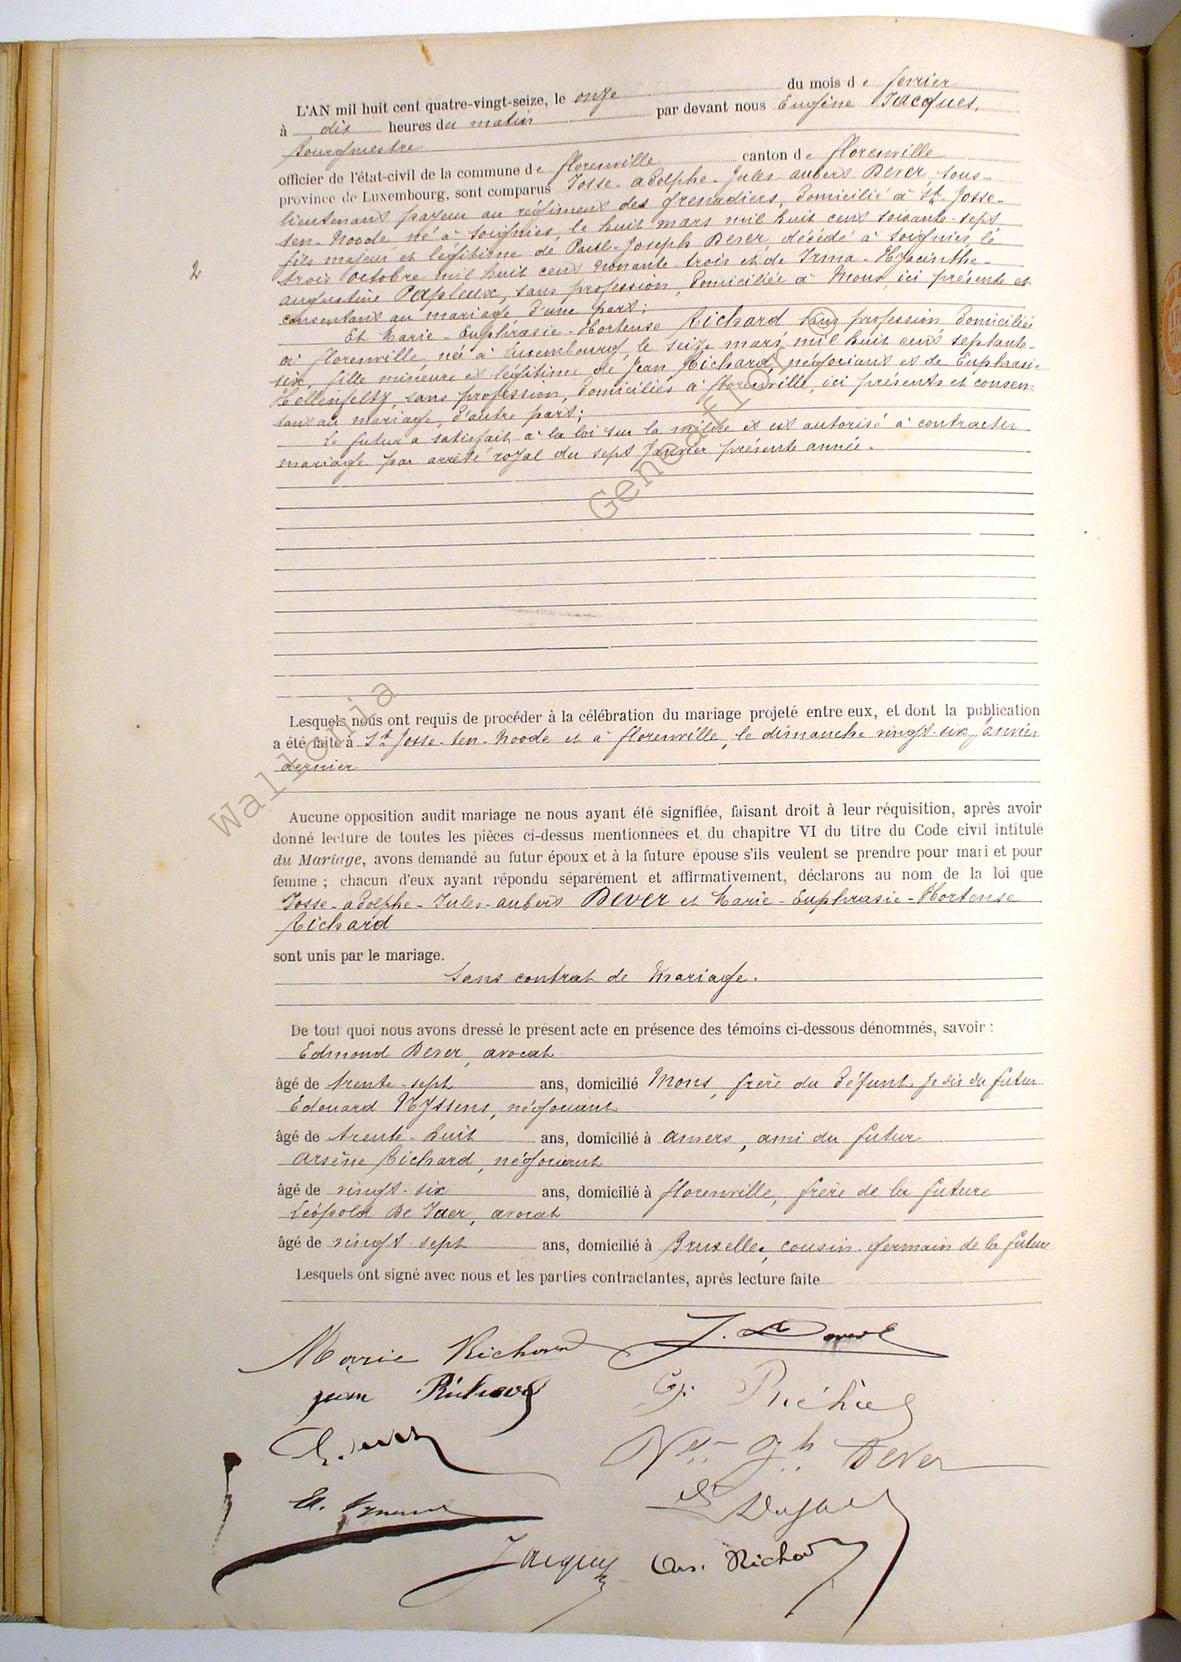 L'AN mil huit cent quatre-vingt-seize, le onze du mois de février
à dix heures du matin par devant nous Eugène Jacques,
bourgmestre
officier de l'état-civil de la commune de florenville canton de florenville
province de Luxembourg, sont comparus Josse-adolphe-Jules-aubert Dever sous-
lieutenant payeur au régiment des grenadiers, domicilié à St. Josse-
ten-Noode, né à Soignies, le huit mars mil huit cent soixante-sept
fils majeur et légitime de Paul-Joseph Dever, décédé à Soignies, le
trois octobre mil huit cent nonante-trois et de Irma-Hyacinthe-
augustine Papleux, sans profession, domiciliée à Mons, ici présente et
consentant au mariage d'une part;
Et Marie-Euphrasie-Hortense Richard sans profession domiciliée
à florenville née à Luxembourg, le seize mars mil huit cent septante-
six, fille mineure et légitime de Jean Richard, négociant et de Euphrasie
Hellenfeltz, sans profession, domiciliés à florenville, ici présents et consen-
tant au mariage, d'autre part;
Le futur a satisfait à la loi sur la milice et est autorisé à contracter
mariage par arrêté royal du sept Janvier présente année.
2
Lesquels nous ont requis de procéder à la célébration du mariage projeté entre eux, et dont la publication
a été faite à St. Josse-ten-Noode et à florenville, le dimanche vingt-six Janvier
dernier
Aucune opposition audit mariage ne nous ayant été signifiée, faisant droit à leur réquisition, après avoir
donné lecture de toutes les pièces ci-dessus mentionnées et du chapitre VI du titre du Code civil intitulé
du Mariage, avons demandé au futur époux et à la future épouse s'ils veulent se prendre pour mari et pour
femme ; chacun d'eux ayant répondu séparément et affirmativement, déclarons au nom de la loi que
Josse-adolphe-Jules-aubert Dever et Marie-Euphrasie-Hortense
Richard
sont unis par le mariage.
Sans contrat de Mariage.
De tout quoi nous avons dressé le présent acte en présence des témoins ci-dessous dénommés, savoir :
Edmond Dever, avocat
âgé de trente-sept ans, domicilié Mons, frère du défunt, je dis du futur
Edouard Nyssens, négociant
âgé de trente-huit ans, domicilié à anvers, ami du futur
arsène Richard, négociant
âgé de vingt-six ans, domicilié à florenville, frère de la future
Léopold De Jaer, avocat
âgé de vingt-sept ans, domicilié à Bruxelles, cousin-germain de la future
Lesquels ont signé avec nous et les parties contractantes, après lecture faite
Marie Richard J. Dever
Jean Richard
Dever
Jacques Ars. Richard
Wallonia Geneaflor ©